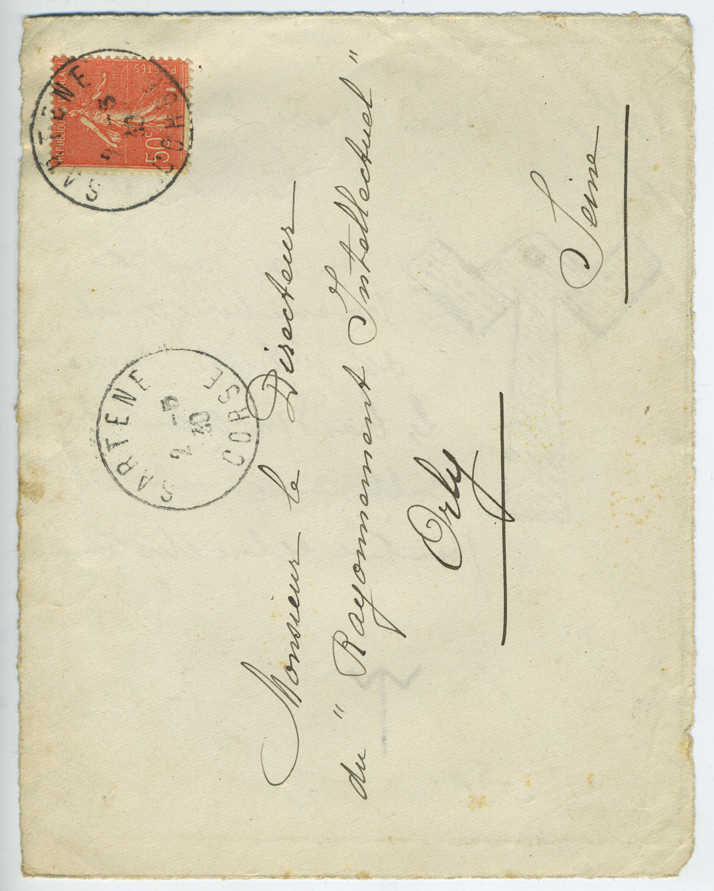 RÉPUBLIQUE FRANÇAISE
POSTES
50c
SARTENE
2 -5
30
CORSE
SARTENE
2 -5
30
CORSE
Monsieur le Directeur
du "Rayonnement Intellectuel"
Orly
Seine